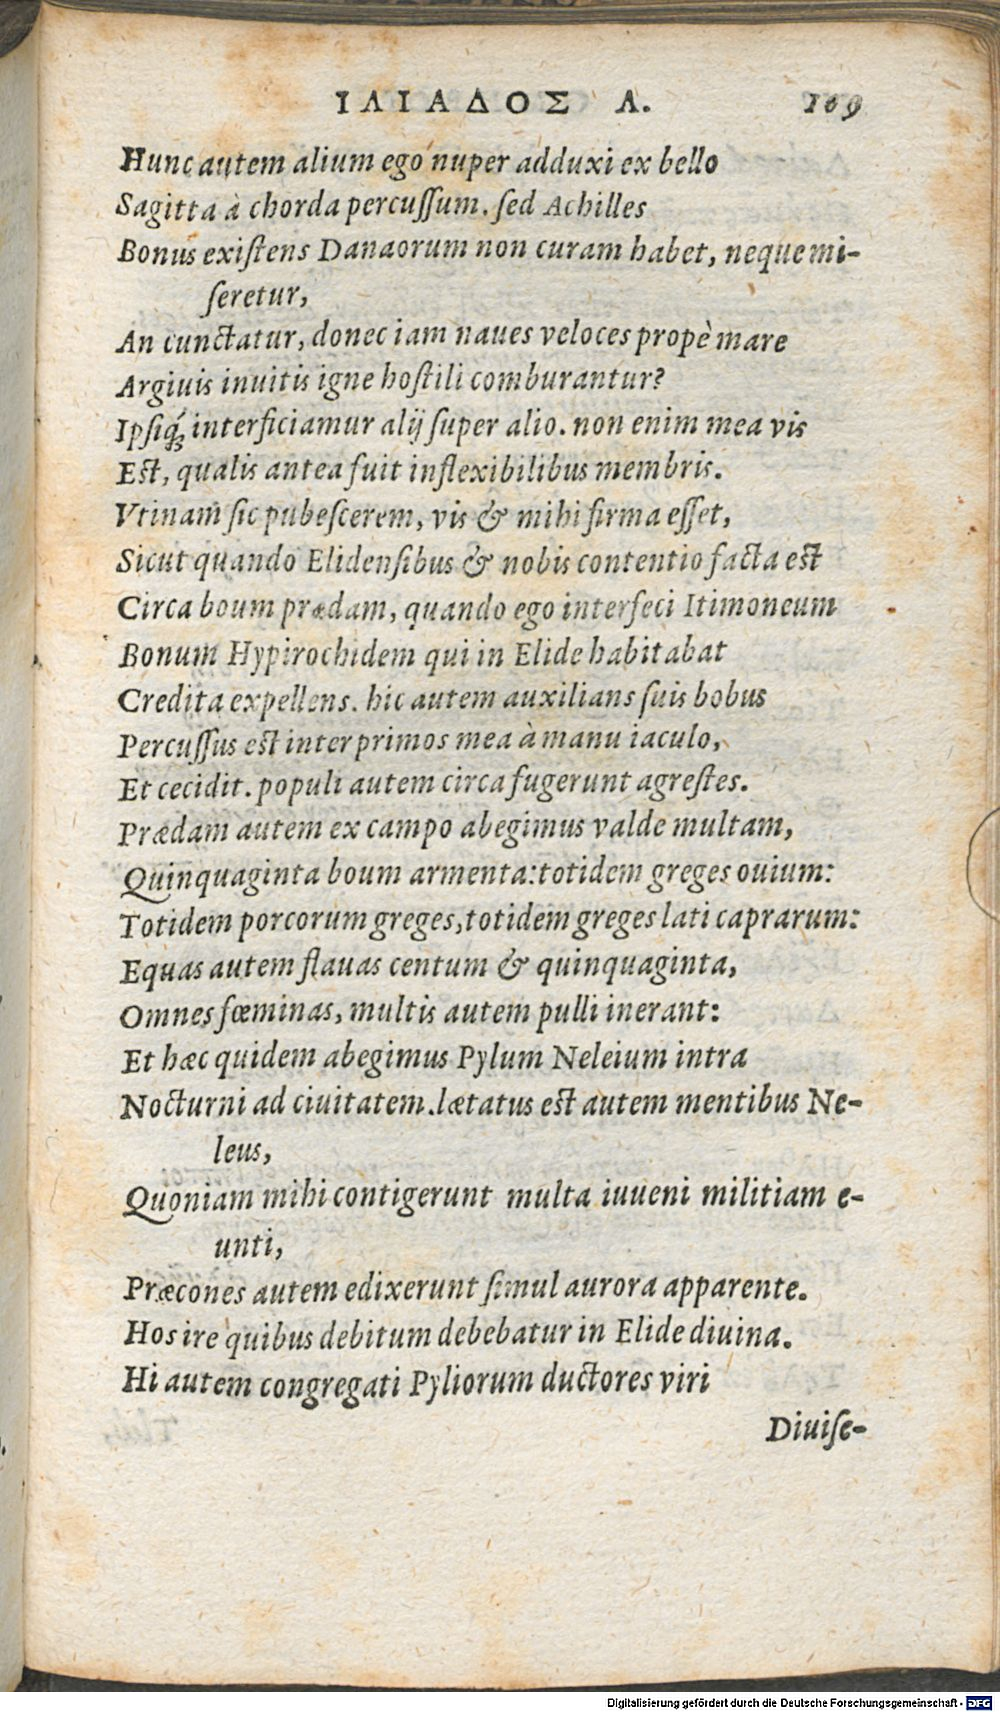 ΙΛΙΑΔΟΣ Λ. 109
Hunc autem alium ego nuper adduxi ex bello
Sagitta à chorda percuſſum. ſed Achilles
Bonus exiſtens Danaorum non curam habet, neque mi-
ſeretur,
An cunctatur, donec iam naues veloces propè mare
Argiuis inuitis igne hoſtili comburantur?
Ipſiq́; interficiamur alij ſuper alio. non enim mea vis
Eſt, qualis antea fuit inflexibilibus membris.
Vtinam ſic pubeſcerem, vis & mihi firma eſſet,
Sicut quando Elidenſibus & nobis contentio facta eſt
Circa boum prædam, quando ego interfeci Itimoneum
Bonum Hypirochidem qui in Elide habitabat
Credita expellens. hic autem auxilians ſuis bobus
Percuſſus eſt inter primos mea à manu iaculo,
Et cecidit. populi autem circa fugerunt agreſtes.
Prædam autem ex campo abegimus valde multam,
Quinquaginta boum armenta: totidem greges ouium:
Totidem porcorum greges, totidem greges lati caprarum:
Equas autem flauas centum & quinquaginta,
Omnes fœminas, multis autem pulli inerant:
Et hæc quidem abegimus Pylum Neleium intra
Nocturni ad ciuitatem. lætatus eſt autem mentibus Ne-
leus,
Quoniam mihi contigerunt multa iuueni militiam e-
unti,
Præcones autem edixerunt ſimul aurora apparente.
Hos ire quibus debitum debebatur in Elide diuina.
Hi autem congregati Pyliorum ductores viri
Diuiſe-
Digitalisierung gefördert durch die Deutsche Forschungsgemeinschaft - DFG